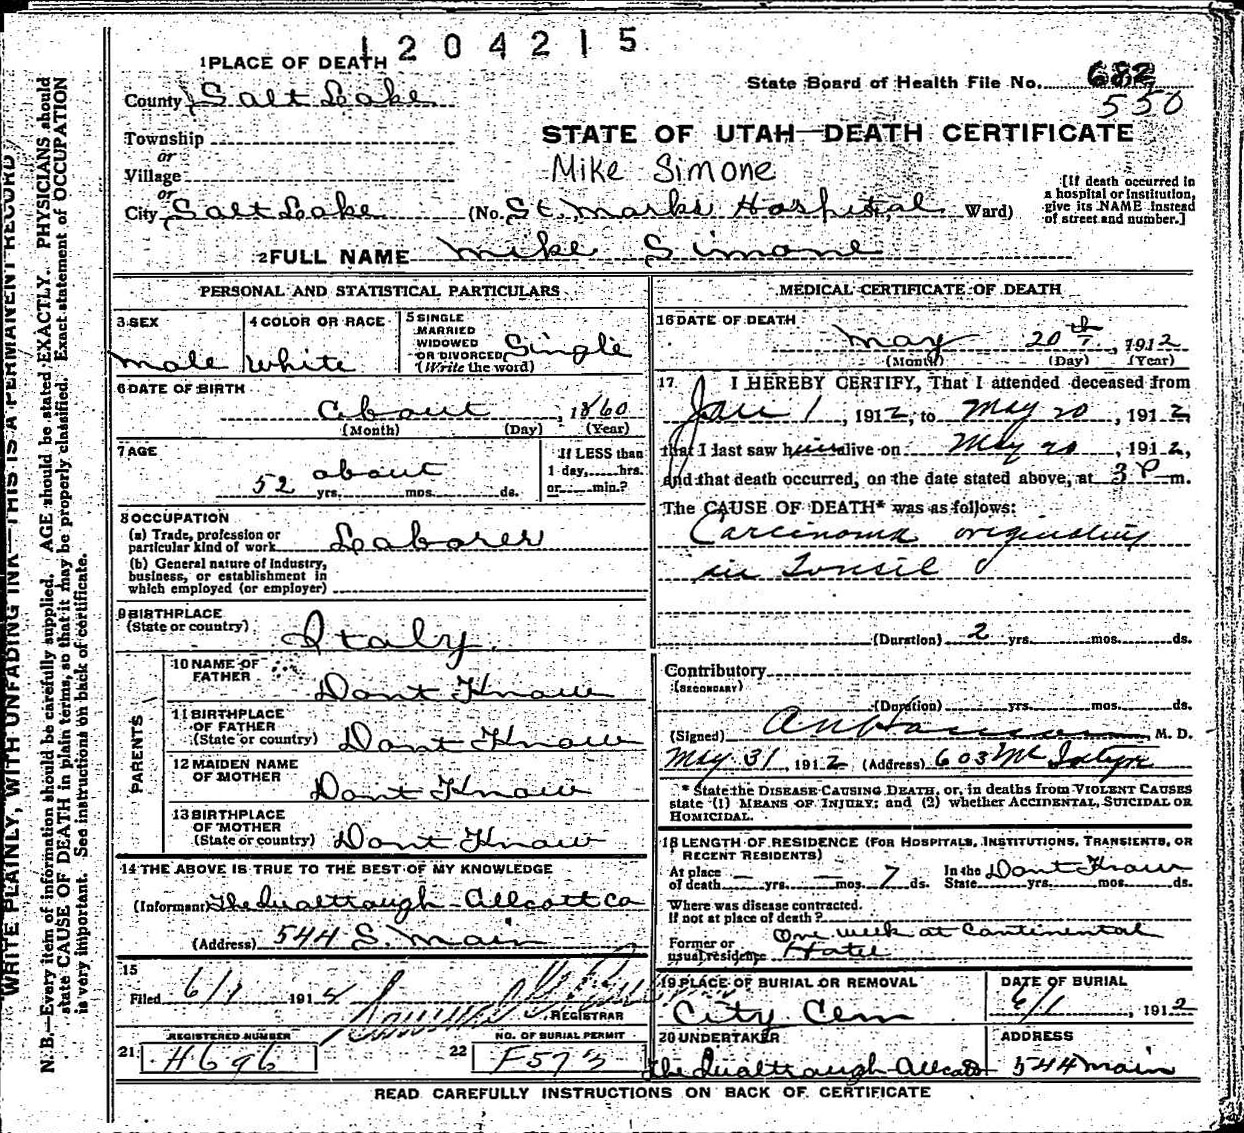 1204215
1 PLACE OF DEATH
State Board of Health File No. 682
550
County Salt Lake
STATE OF UTAH—DEATH CERTIFICATE
Township
or
Village
Mike Simone
or
City Salt Lake (No. St. Marks Hospital Ward)
[If death occurred in a hospital or institution, give its NAME instead of street and number.]
2 FULL NAME Mike Simone
PERSONAL AND STATISTICAL PARTICULARS
3 SEX
Male
4 COLOR OR RACE
White
5 SINGLE
MARRIED
WIDOWED
OR DIVORCED
(Write the word)
Single
6 DATE OF BIRTH
about, 1860
(Month) (Day) (Year)
7 AGE
about
52 yrs. mos. ds.
If LESS than
1 day, hrs.
or min.?
8 OCCUPATION
(a) Trade, profession or
particular kind of work Laborer
(b) General nature of Industry,
business, or establishment in
which employed (or employer)
9 BIRTHPLACE
(State or country) Italy
PARENTS
10 NAME OF
FATHER Dont Know
11 BIRTHPLACE
OF FATHER
(State or country) Dont Know
12 MAIDEN NAME
OF MOTHER Dont Know
13 BIRTHPLACE
OF MOTHER
(State or country) Dont Know
14 THE ABOVE IS TRUE TO THE BEST OF MY KNOWLEDGE
(Informant)
(Address) 544 S. Main
15
Filed 6/1 191
REGISTRAR
REGISTERED NUMBER
21 H696
NO. OF BURIAL PERMIT
22 F573
MEDICAL CERTIFICATE OF DEATH
16 DATE OF DEATH
May 20th, 1912
(Month) (Day) (Year)
17 I HEREBY CERTIFY, That I attended deceased from
Jan 1, 1912, to May 20, 1912,
that I last saw him alive on May 20, 1912,
and that death occurred, on the date stated above, at 3 P m.
The CAUSE OF DEATH* was as follows:
Carcinoma originating
in Tonsil
(Duration) 2 yrs. mos. ds.
Contributory
(SECONDARY)
(Duration) yrs. mos. ds.
(Signed) M. D.
May 31, 1912 (Address) 603 Mc Intyre
* State the DISEASE CAUSING DEATH, or, in deaths from VIOLENT CAUSES
state (1) MEANS OF INJURY; and (2) whether ACCIDENTAL, SUICIDAL OR
HOMICIDAL.
18 LENGTH OF RESIDENCE (FOR HOSPITALS, INSTITUTIONS, TRANSIENTS, OR
RECENT RESIDENTS)
At place
of death — yrs. — mos. 7 ds.
In the
State Dont Know yrs. mos. ds.
Where was disease contracted.
If not at place of death?
Former or
usual residence One week at Continental
Hotel
19 PLACE OF BURIAL OR REMOVAL
City Cem
DATE OF BURIAL
6/1, 1912
20 UNDERTAKER
ADDRESS
544 Main
READ CAREFULLY INSTRUCTIONS ON BACK OF CERTIFICATE
WRITE PLAINLY, WITH UNFADING INK—THIS IS A PERMANENT RECORD
N. B.—Every item of information should be carefully supplied. AGE should be stated EXACTLY. PHYSICIANS should
state CAUSE OF DEATH in plain terms, so that it may be properly classified. Exact statement of OCCUPATION
is very important. See instructions on back of certificate.